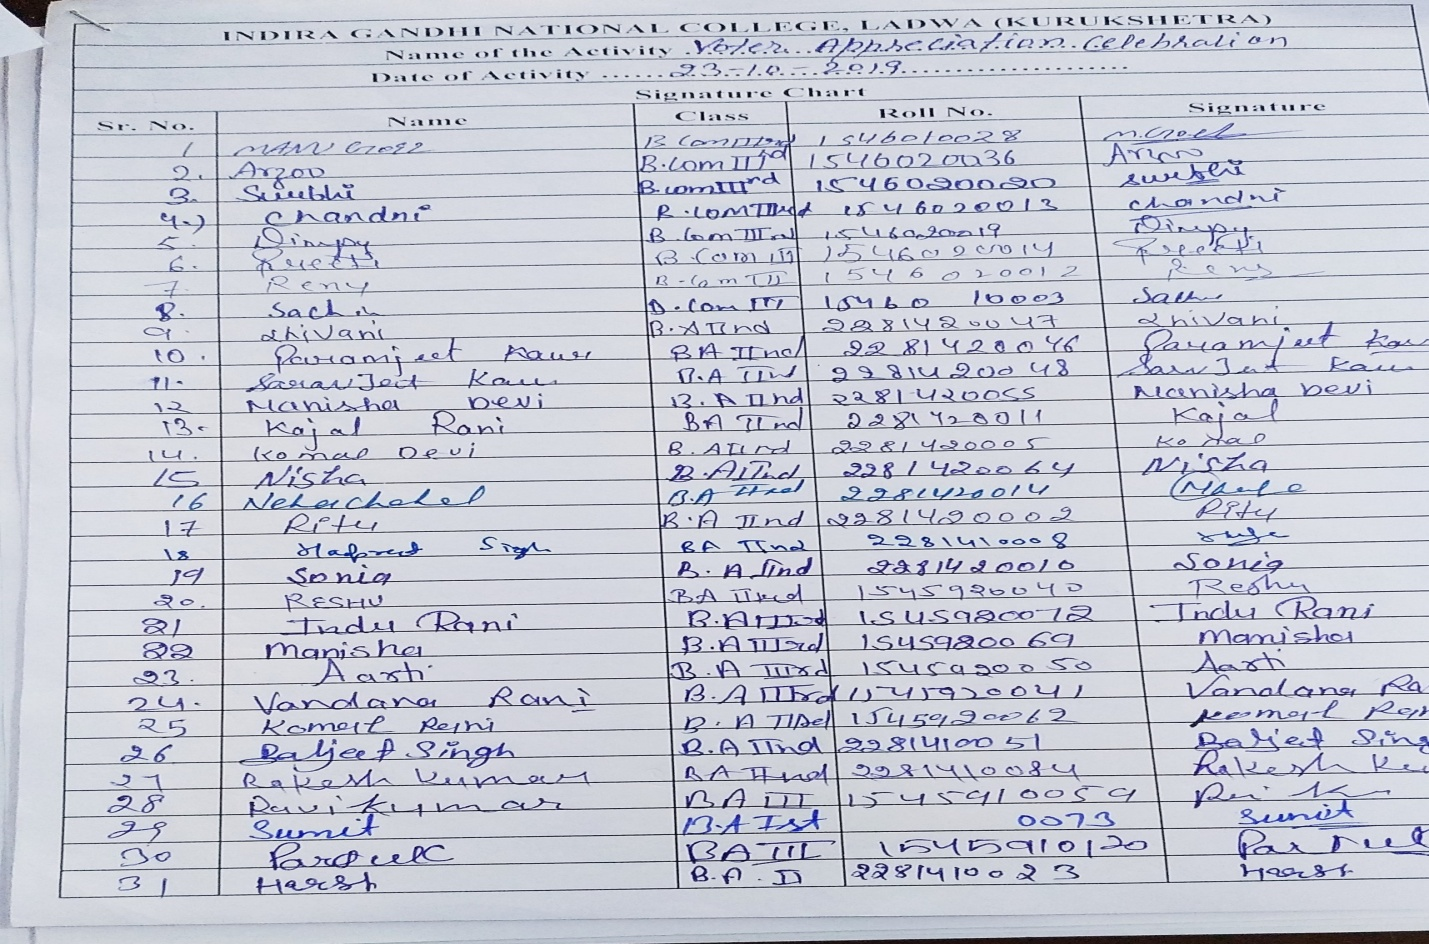 INDIRA GANDHI NATIONAL COLLEGE, LADWA (KURUKSHETRA)
Name of the Activity .Voter..Appreciation.Celebration
Date of Activity ......23-10-2019......................
Signature Chart
Sr. No. Name Class Roll No. Signature
1 MANU GOEL B Com IIIrd 1546010028 M.Goel
2. Arzoo B.Com IIIrd 1546020036 Arzoo
3. Surbhi B.com IIIrd 1546020020 Surbhi
4.) Chandni B.Com IIIrd 1546020013 Chandni
5. Dimpy B.Com IIIrd 1546020019 Dimpy
6. Preeti B.Com III 1546020014 Preeti
7. Renu B.Com III 1546020012 Renu
8. Sachin B.Com III 15460 10003
9 Shivani B.A IInd 2281420047 Shivani
10. Paramjeet Kaur BA IInd 2281420046 Paramjeet Kau
11. Karamjeet Kaur B.A IInd 2281420048 Kaur
12 Manisha Devi B.A IInd 2281420055 Manisha Devi
13. Kajal Rani BA IInd 2281420011 Kajal
14. Komal Devi B.A IInd 2281420005 Komal
15 Nisha B.A IInd 2281420064 Nisha
16 B.A IInd 2281420014
17 Ritu B.A IInd 2281420002 Ritu
18 BA IInd 2281410008
19 Sonia B.A IInd 2281420010 Sonia
20. RESHU BA IIIrd 1545920040 Reshu
21 Indu Rani B.A IIIrd 1545920072 Indu Rani
22 Manisha B.A IIIrd 1545920069 Manisha
23. Aarti B.A IIIrd 1545920050 Aarti
24. Vandana Rani B.A IIIrd 1545920041 Vandana Ra
25 Komal Rani B.A IIIrd 1545920062 Komal Ran
26 Baljeet Singh B.A IInd 2281410051 Baljeet Sing
27 Rakesh Kumar BA IInd 2281410084 Rakesh Ku
28 Ravi Kumar BA III 1545910059
29 Sumit B.A Ist 0073 Sumit
30 BA III 1545910120
31 Harsh B.A. II 2281410023 Harsh